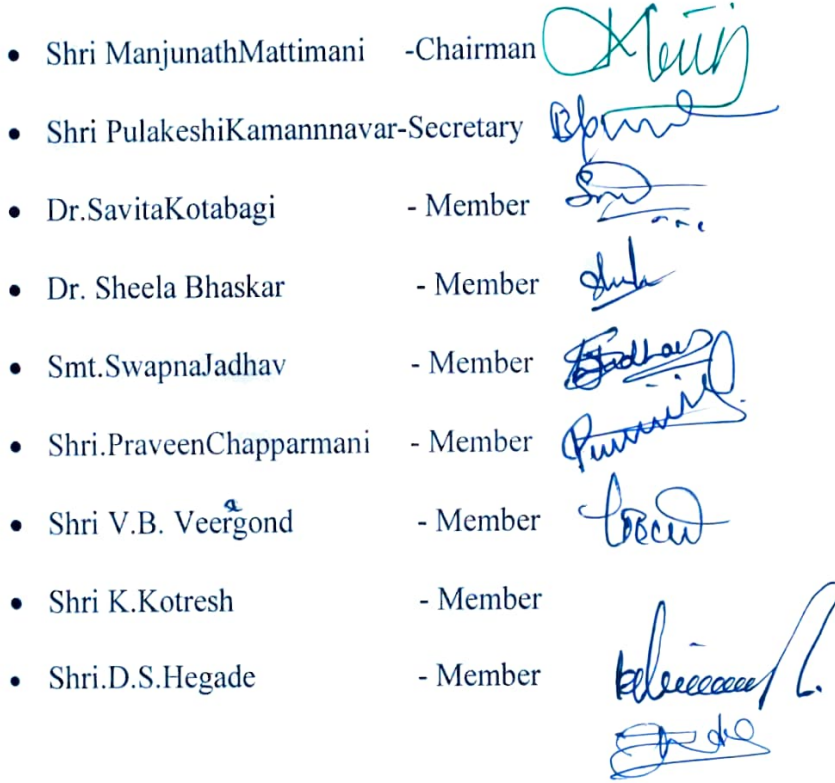 • Shri ManjunathMattimani -Chairman
• Shri PulakeshiKamannnavar-Secretary
• Dr.SavitaKotabagi - Member
• Dr. Sheela Bhaskar - Member
• Smt.SwapnaJadhav - Member Jadhav
• Shri.PraveenChapparmani - Member
• Shri V.B. Veeragond - Member
• Shri K.Kotresh - Member
• Shri.D.S.Hegade - Member